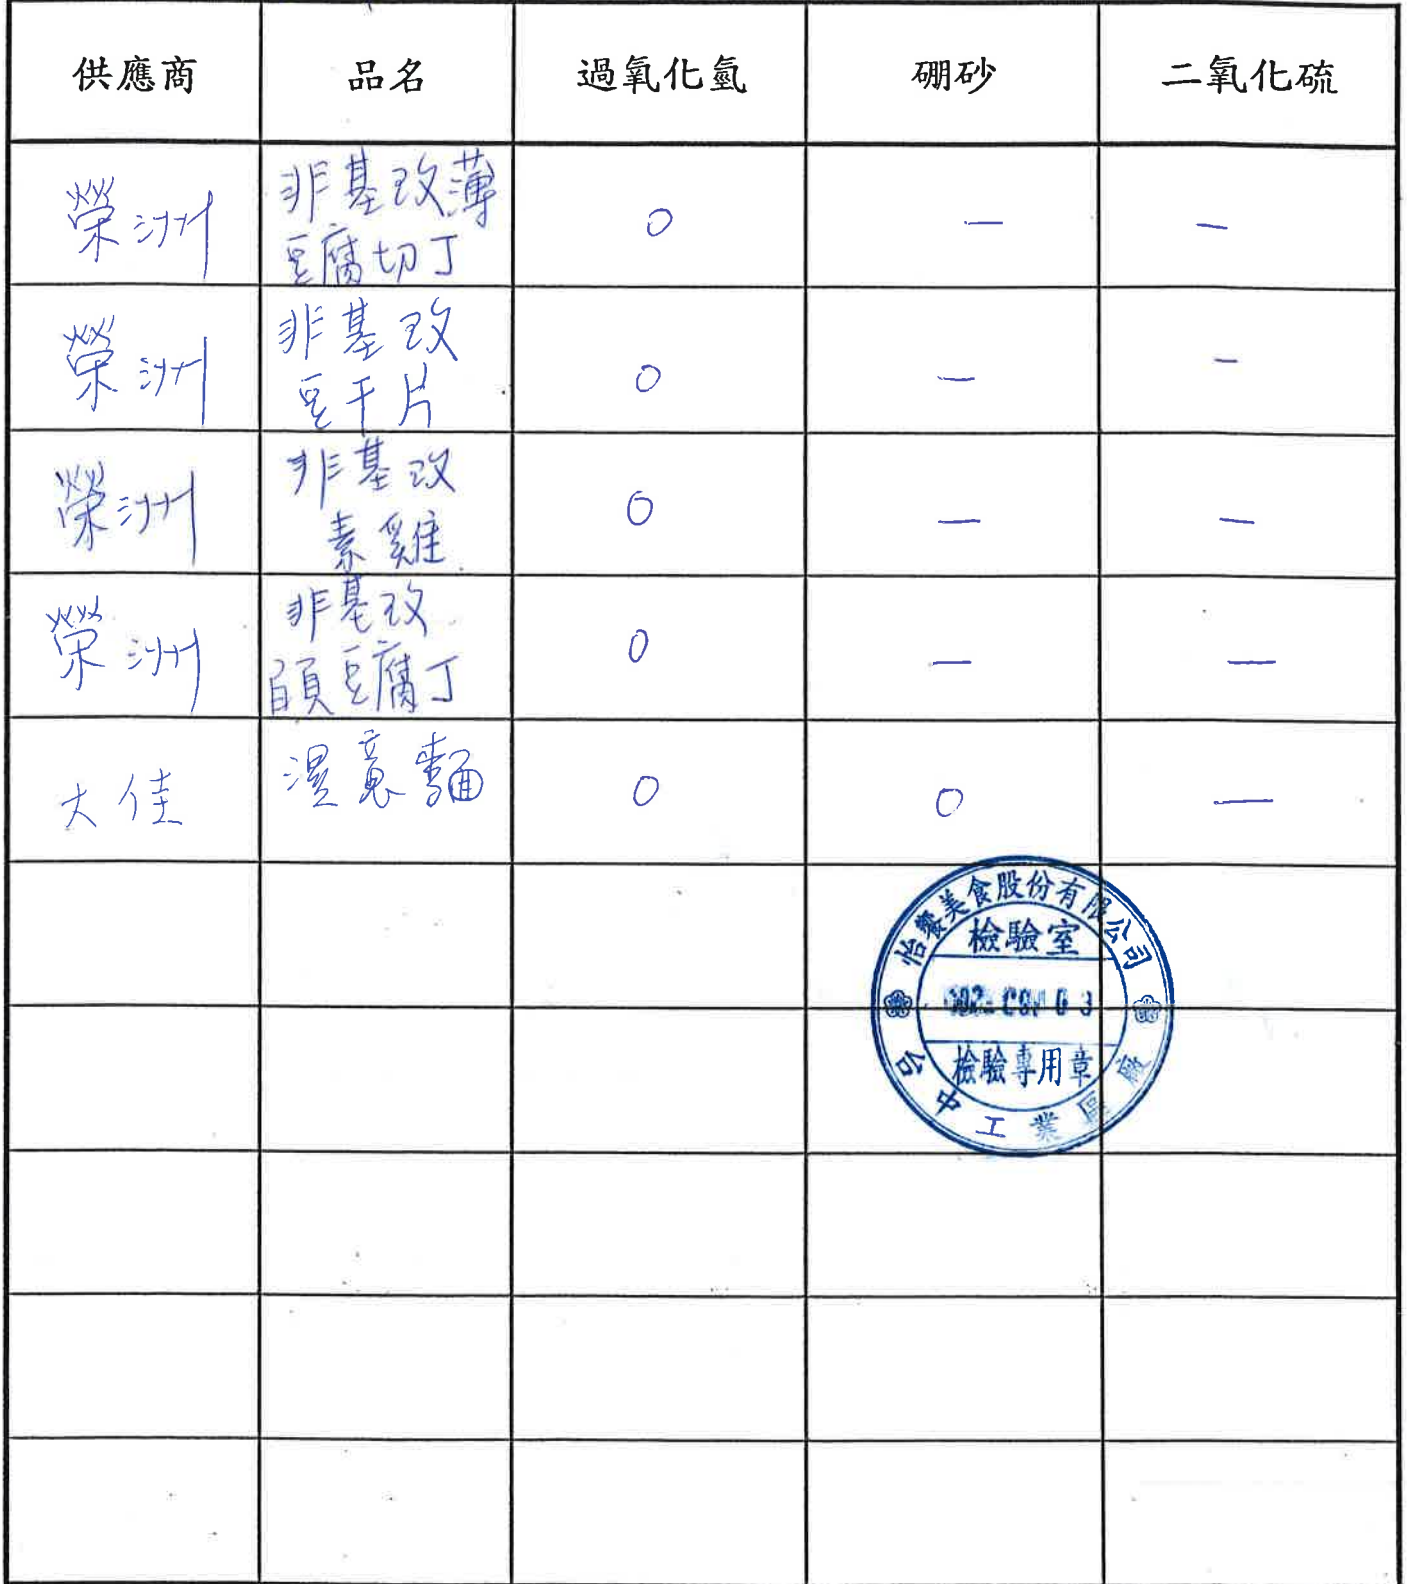 供應商 品名 過氧化氫 硼砂 二氧化硫
榮洲 非基改薄 O — —
豆腐切丁
榮洲 非基改 O — —
豆干片
榮洲 非基改 O — —
素雞
榮洲 非基改 O — —
豆腐丁
大佳 濕意麵 O O —
怡饗美食股份有限公司
檢驗室
檢驗專用章
台中工業區廠